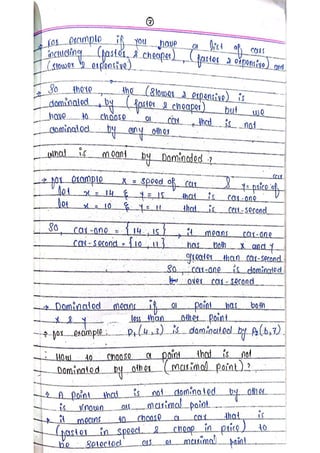 7
→ for example if you have a list of cars
including (faster & cheaper), (faster & expensive) and
(slower & expensive)
→ So there, the (slower & expensive) is
dominated by (faster & cheaper) but we
have to choose a car, that is not
dominated by any other
What is meant by Dominated?
→ for example x = speed of car & y = price of car
let x = 14 & y = 15 that is car-one
let x = 10 & y = 11 that is car-second
So, car-one = {14, 15}, it means car-one
car-second = {10, 11} has both x and y
greater than car-second
So, car-one is dominated
over car-second
→ Dominated means if a point has both
x & y less than other point
→ for example: P1(4,3) is dominated by P2(6,7).
How to choose a point that is not
Dominated by other (marimal point)?
→ A point that is not dominated by other
is known as marimal point
→ it means to choose a car that is
(faster in speed & cheap in price) to
be selected as a marimal point